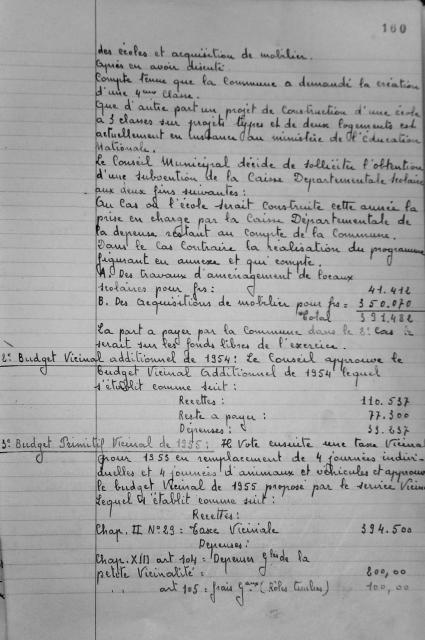 160
des écoles et acquisition de mobilier.
Après en avoir discuté
Compte tenu que la Commune a demandé la création
d'une 4ème classe.
Que d'autre part un projet de Construction d'une école
à 3 classes sur projets types et de deux logements est
actuellement en instance au ministère de l'Éducation
Nationale.
Le Conseil Municipal décide de solliciter l'obtention
d'une subvention de la Caisse Départementale scolaire
aux deux fins suivantes :
Au Cas où l'école serait construite cette année la
prise en charge par la Caisse Départementale de
la dépense restant au compte de la Commune.
Dans le Cas Contraire la réalisation du programme
figurant en annexe et qui compte.
A. Des travaux d'aménagement de locaux
scolaires pour frs : 41.412
B. Des acquisitions de mobilier pour frs = 350.070
Total 391.482
La part à payer par la Commune dans le 2° Cas
serait sur les fonds libres de l'exercice.
2° Budget Vicinal additionnel de 1954 : Le Conseil approuve le
budget Vicinal Additionnel de 1954 lequel
s'établit comme suit :
Recettes : 110.537
Reste à payer : 77.300
Dépenses : 33.237
3° Budget Primitif Vicinal de 1955 : Il Vote ensuite une taxe Vicinale
pour 1955 en remplacement de 4 journées indivi-
duelles et 4 journées d'animaux et véhicules et approuve
le budget Vicinal de 1955 proposé par le service Vicinal
lequel s'établit comme suit :
Recettes :
Chap. II N° 29 : Taxe Viciniale 394.500
Dépenses :
Chap. XIII art 104 : Dépenses Gales de la
petite Vicinalité = 200,00
" " art 105 : frais Gaux (Rôles timbres) 100,00